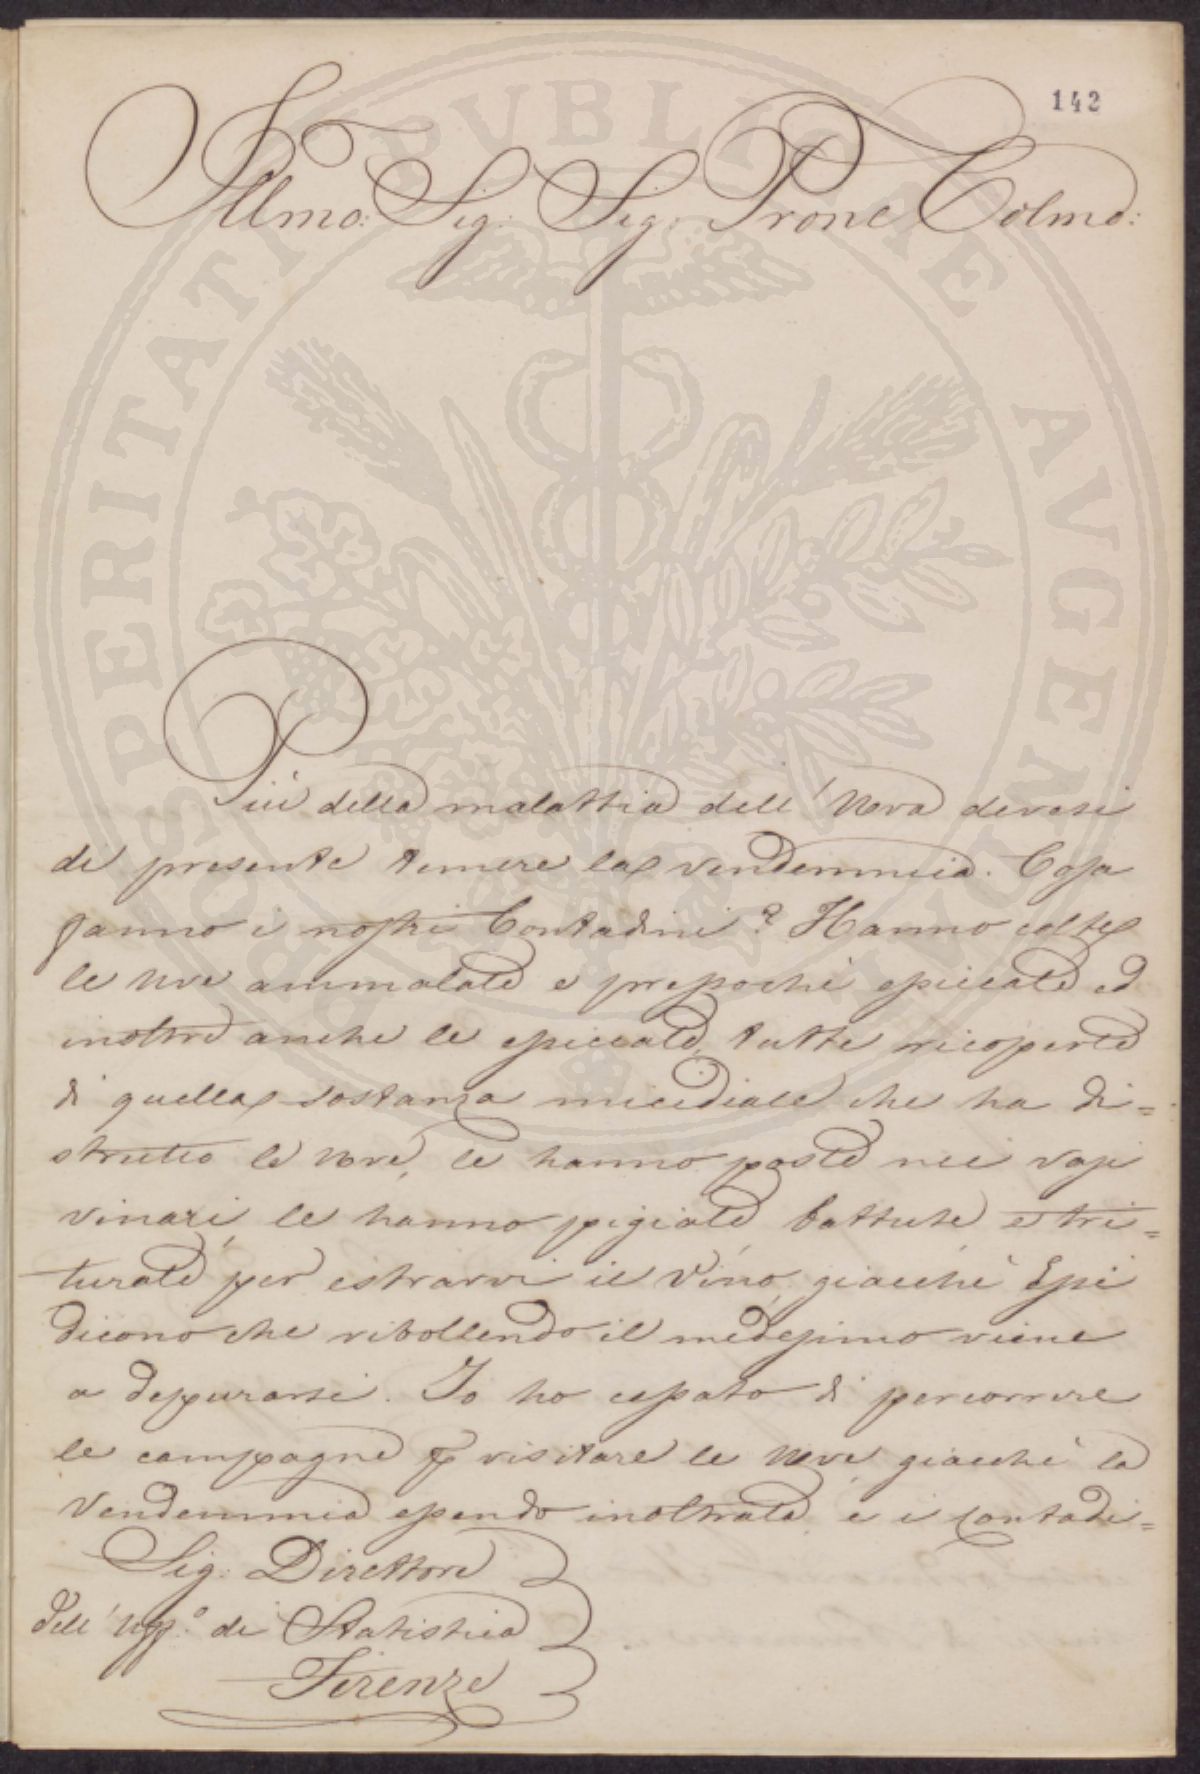 142
Illmo: Sig: Sig: Prone Colmo:
Più della malattia dell'Uova devesi
di presente temere la vendemmia. Cosa
fanno i nostri Contadini? Hanno colte
le Uve ammalate e pressochè essiccate ed
inoltre anche le essiccate, tutte ricoperte
di quella sostanza micidiale che ha di=
strutto le Uve, le hanno poste nei vasi
vinari, le hanno pigiate, battute, e tri=
turate per estrarvi il Vino, giacchè Essi
dicono che ribollendo il medesimo viene
a depurarsi. Io ho cessato di percorrere
le campagne p visitare le Uve, giacchè la
Vendemmia essendo inoltrata, e i contadi=
Sig: Direttore
Dell'Uffo. di Statistica
Firenze
PROSPERITATI PVBLICAE AVGENDAE